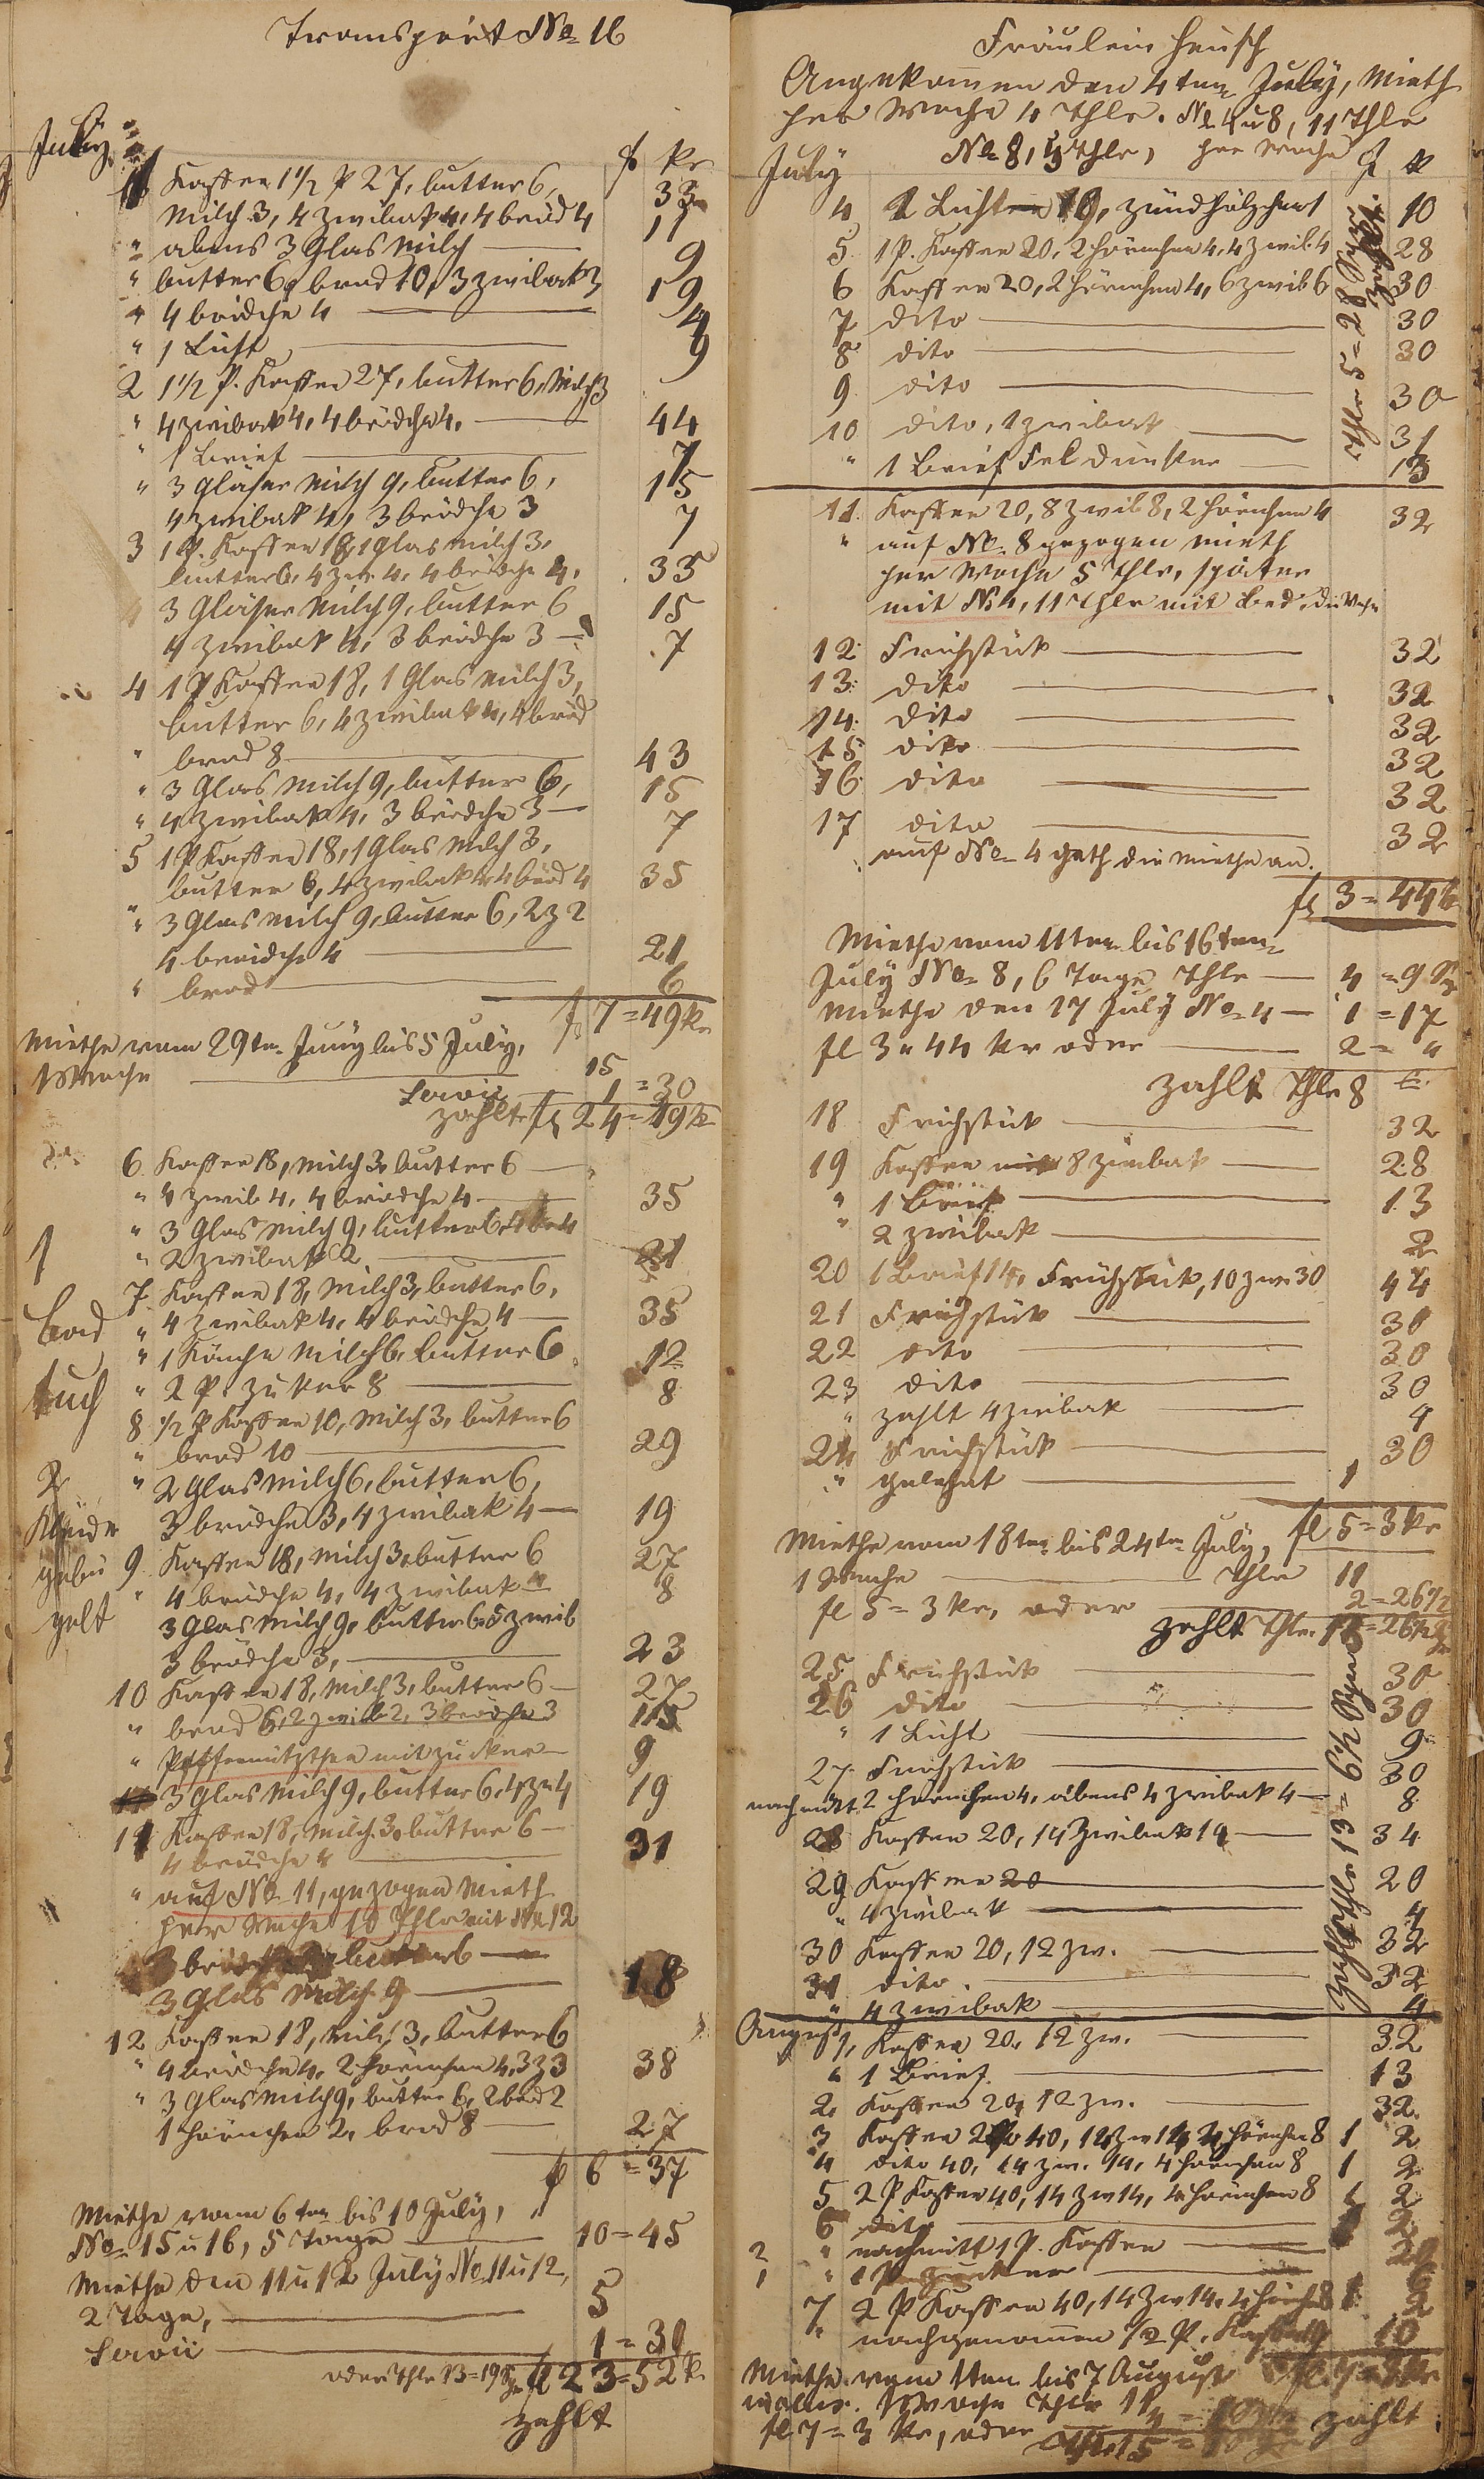 Transport No 16
July fl kr
1 Kaffee 1 1/2 P 27, butter 6, 33
Milch 3, 4 zwibak 4, 4 bröd 4 11
" abens 3 Glas Milch 9
" butter 6, brod 10, 3 zwibak 3 19
" 4 brödche 4 4
" 1 Licht 9
2 1 1/2 P. Kaffee 27, butter 6, Milch 3
" 4 zwibak 4, 4 brödche 4, 44
" 1 Brief 7
" 3 Gläser Milch 9, butter 6, 15
4 zwibak 4, 3 brödche 3 7
3 1 P. Kaffee 18, 1 Glas Milch 3,
butter 6, 4 zw. 4, 4 brödche 4, 35
4 3 Gläser Milch 9, butter 6 15
4 zwibak 4, 3 brödche 3 7
4 1 P Kaffee 18, 1 Glas Milch 3,
butter 6, 4 zwibak 4, 4 bröd
" brod 8 43
" 3 Glas Milch 9, butter 6, 15
" 4 zwibak 4, 3 brödche 3 7
5 1 P Kaffee 18, 1 Glas Milch 3,
butter 6, 4 zwibak 4 4 bröd 4 35
" 3 Glas Milch 9, butter 6, 2 z 2
4 brödche 4 21
" brod 6
fl 7 = 49 kr
Miethe vom 29ten Juny bis 5 July,
1 Woche 15
Servis 1 = 30
zahlte fl 24 = 19 k
6 Kaffee 18, Milch 3, butter 6
" 4 zwib 4, 4 brödche 4 35
" 3 Glas Milch 9, butter 6, 4 br 4
" 2 zwibak 2 21
7 Kaffee 18, Milch 3, butter 6,
" 4 zwibak 4, 4 brödche 4 35
" 1 Könche Milch 6, butter 6 12
" 2 P. zuker 8 8
8 1/2 P Kaffee 10, Milch 3, butter 6
" brod 10 29
" 2 Glas Milch 6, butter 6,
3 brödche 3, 4 zwibak 4 19
9 Kaffee 18, Milch 3, butter 6 27
" 4 brödche 4, 4 zwibak 4 8
3 Glas Milch 9, butter 6, 5 zwib
3 brödche 3, 23
10 Kaffee 18, Milch 3, butter 6 27
" brod 6, 2 zwib 2, 3 brödche 3 15
" Pfeffermitzthee mit zucker 9
3 Glas Milch 9, butter 6, 4 zw 4 19
11 Kaffee 18, Milch 3, butter 6
4 brödche 4 31
" auf No 11, gezogen Mieth
per Woche 10 Thlr mit No 12
3 butter 6
3 Glas Milch 9 18
12 Kaffee 18, Milch 3, butter 6
" 4 brödche 4, 2 hörnchen 4, 3 z 3 38
" 3 Glas Milch 9, butter 6, 2 bröd 2
1 hörnchen 2, brod 8 27
fl 6 = 37
Miethe vom 6ten bis 10 July,
No 15 u 16, 5 Tage 10 = 45
Miethe den 11 u 12 July No 11 u 12,
2 Tage, 5
Servis 1 = 30
oder Thlr 13 = 19 Sg fl 23 = 52 k
zahlt
1
bad
tuch
2
Kleider
gebü
gelt
Fräulein Heusch
Angekomen den 4ten July, Mieth
per Woche 4 Thlr. No 4 u 8, 11 Thlr
No 8, 5 Thlr, per Woche
July fl kr
4 1 Licht 9, zündhölzcher 1 10
5 1 P. Kaffee 20, 2 hörnchen 4, 4 zwib 4 28
6 Kaffee 20, 2 hörnchen 4, 6 zwib 6 30
7 dito 30
8 dito 30
9 dito 30
10 dito, 1 zwibak 31
" 1 Brief Frl Dunker 13
Thlr 5 = 28 Sg zahlt.
11 Kaffee 20, 8 zwib 8, 2 hörnchen 4 32
" auf No 8 gezogen Mieth
per Woche 5 Thlr, später
mit No 4, 11 Thlr mit Bed. die Woche
12 Frühstük 32
13 dito 32
14 dito 32
15 dito 32
16 dito 32
17 dito 32
auf No 4 geth die Miethe an.
fl 3 = 44 k
Miethe vom 11ten bis 16ten
July No 8, 6 Tage Thlr 4 = 9 Sg
Miethe den 17 July No 4 1 = 17
fl 3 " 44 kr oder 2 = "
zahlt Thlr 8
18 Frühstük 32
19 Kaffee 8 zwibak 28
" 1 Brief 13
" 2 zwibak 2
20 1 Brief 14, Frühstük, 10 zw 30 44
21 Frühstük 30
22 dito 30
23 dito 30
" zahlt 4 zwibak 4
24 Frühstük 30
" gelehnt 1
fl 5 = 3 kr
Miethe vom 18ten bis 24ten July,
1 Woche Thlr 11
fl 5 = 3 kr, oder 2 = 26 1/2
zahlt Thlr. 13 = 26 1/2 Sg
25 Frühstük 30
26 dito 30
" 1 Licht 9
27 Frühstük 30
nachmitt 2 hörnchen 4, abens 4 zwibak 4 8
28 Kaffee 20, 14 zwibak 14 34
29 Kaffee 20 20
" 4 zwibak 4
30 Kaffee 20, 12 zw. 32
31 dito 32
" 4 zwibak 4
zahlt Thlr 13 = 6 1/2
August 1, Kaffee 20, 12 zw. 32
" 1 Brief. 13
2. Kaffee 20, 12 zw. 32.
3 Kaffee 40, 14 zw 14, 4 hörnchen 8 1 2
4 dito 40, 14 zw. 14, 4 hörnchen 8 1 2
5 2 P Kaffee 40, 14 zw 14, 4 hörnchen 8 1 2
6 dito 1 2
" nachmitt 1 P. Kaffee 20
" 6
7 2 P Kaffee 40, 14 zw 14, 4 hörnch 8 1 2
" nachgenomen 1/2 P. Kaffee 10
Miethe vom 1ten bis 7 August fl 7 = 3 kr
1 Woche Thlr 11
fl 7 = 3 kr, oder 4 = zahlt
Thlr 15 =